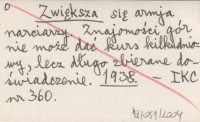 o
Zwiększa się armja
narciarzy. Znajomości gór
nie może dać kurs kilkudnio-
wy, lecz długo zbierane do-
świadczenie. 1938. – IKC
nr 360.